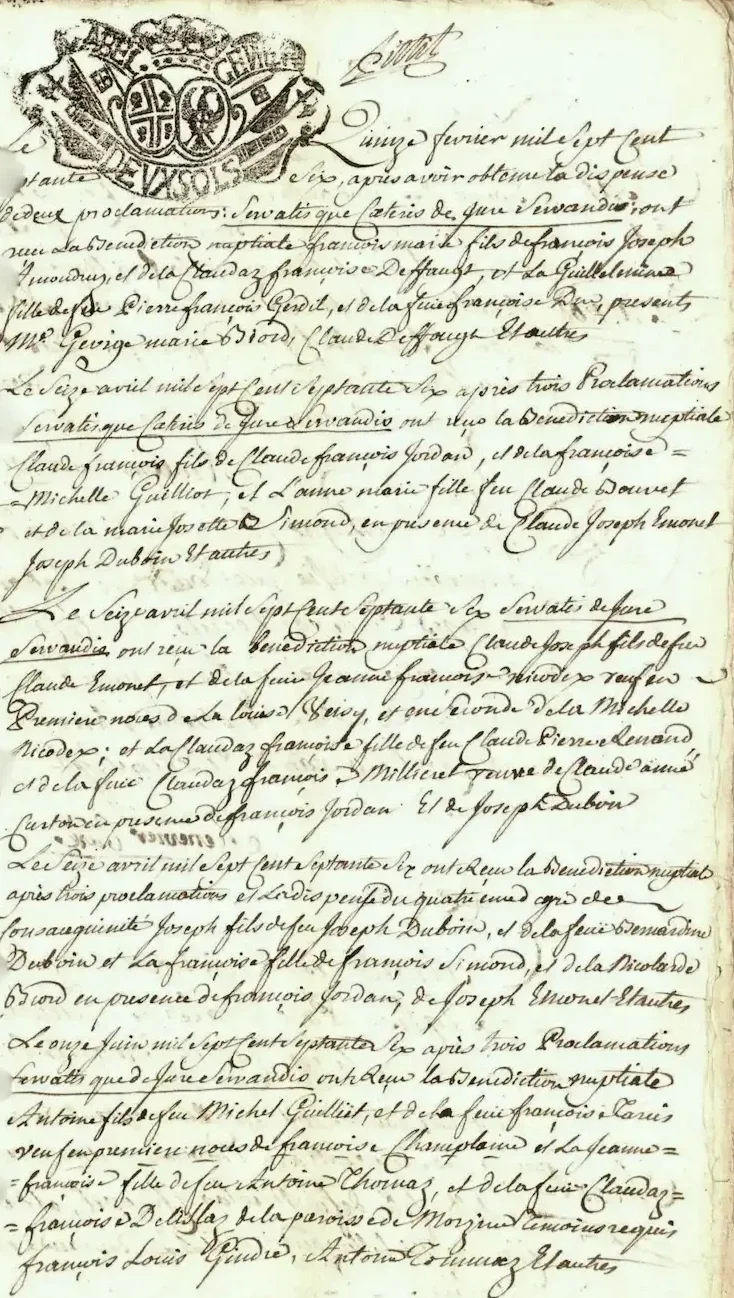 ABEC GENEV
DEUX SOLS
Le Quinze fevrier mil sept cent
ptante six, apres avoir obtenu la dispense
de deux proclamations. Servatis que Cæteris de Jure Servandis, ont
recu La Benediction nuptiale françois marie fils de françois Joseph
et de la Claudaz françoise Deffaugt, et La Guillelmine
fille de feu Pierre françois Gerdil, et de la feüe françoise Du, presents
Mre George marie Biord, Claude Deffougt Et autres
Le Seize avril mil sept Cent Septante Six après trois Proclamations
Servatis que Cæteris de Jure Servandis ont reçu la Benediction nuptiale
Claude françois fils de Claude françois Jordan, et de la françoise =
= Michelle Guilliot; et L'anne marie fille feu Claude Bouvet
et de la marie Josette Simond, en presence de Claude Joseph Emonet
Joseph Duboin Et autres
Le Seize avril mil sept Cent Septante Six Servatis de Jure
Servandis, ont reçu la benediction nuptiale Claude Joseph fils de feu
Claude Emonet, et de la feüe Jeanne françoise nicodex veuf en
Premiere noces de La louise, et en Seconde de la Michelle
Nicodex; et La Claudaz françoise fille de feu Claude Pierre Renand
et de la feüe Claudaz françoise Millieret veuve de Claude aimé
Curton en presence de françois Jordan Et de Joseph Duboin
Le Seize avril mil sept Cent Septante Six ont Reçu la Benediction nuptiale
après trois proclamations et La dispense du quatrieme degré de
Consacquinité Joseph fils de feu Joseph Duboin, et de la feüe Bernardine
Duboin et La françoise fille de françois Simond, et de la Nicolarde
Biord en presence de françois Jordan, de Joseph Emonet Et autres
Le onze Juin mil Sept Cent Septante Six après trois Proclamations
Servatis que de Jure Servandis ont Reçu la Benediction nuptiale
Antoine fils de feu Michel Guilliet, et de la feüe françoise Tavis
veuf en premiere noces de françoise Champlane et La Jeanne =
= françoise fille de feu Antoine Thomaz, et de la feüe Claudaz =
= françoise de la paroisse de Morzine Temoins requis
françois Louis Gindre, Antoine Et autres